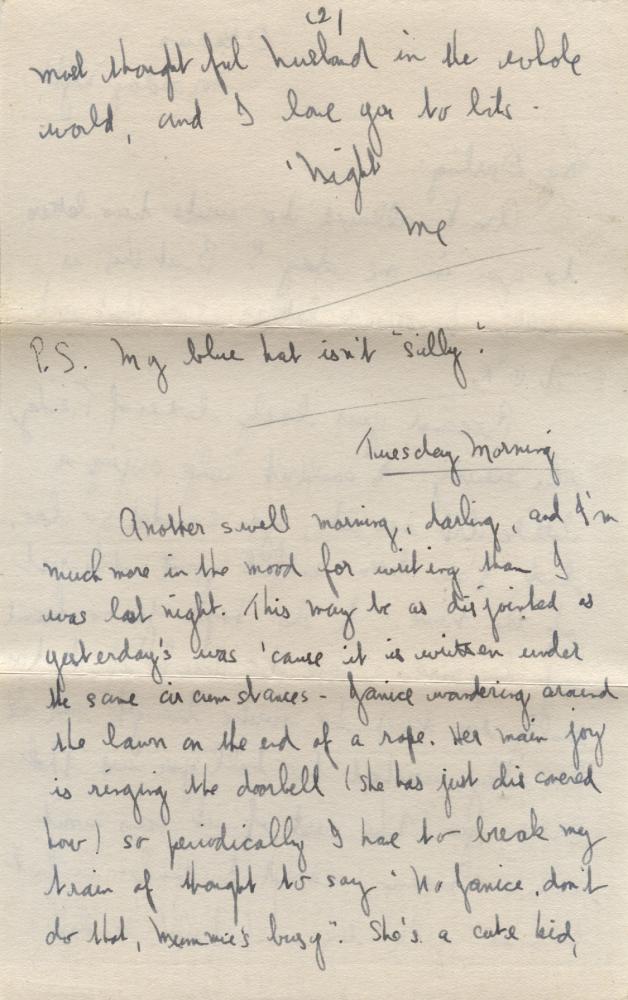 (2)
most thoughtful husband in the whole
world, and I love you to bits -
'Night
Me
P.S. My blue hat isn't "silly".
Tuesday Morning
Another swell morning, darling, and I'm
much more in the mood for writing than I
was last night. This may be as disjointed as
yesterday's was 'cause it is written under
the same circumstances - Janice wandering around
the lawn on the end of a rope. Her main joy
is ringing the doorbell (she has just discovered
how) so periodically I have to break my
train of thought to say "No Janice, don't
do that, Mummie's busy". She's a cute kid,